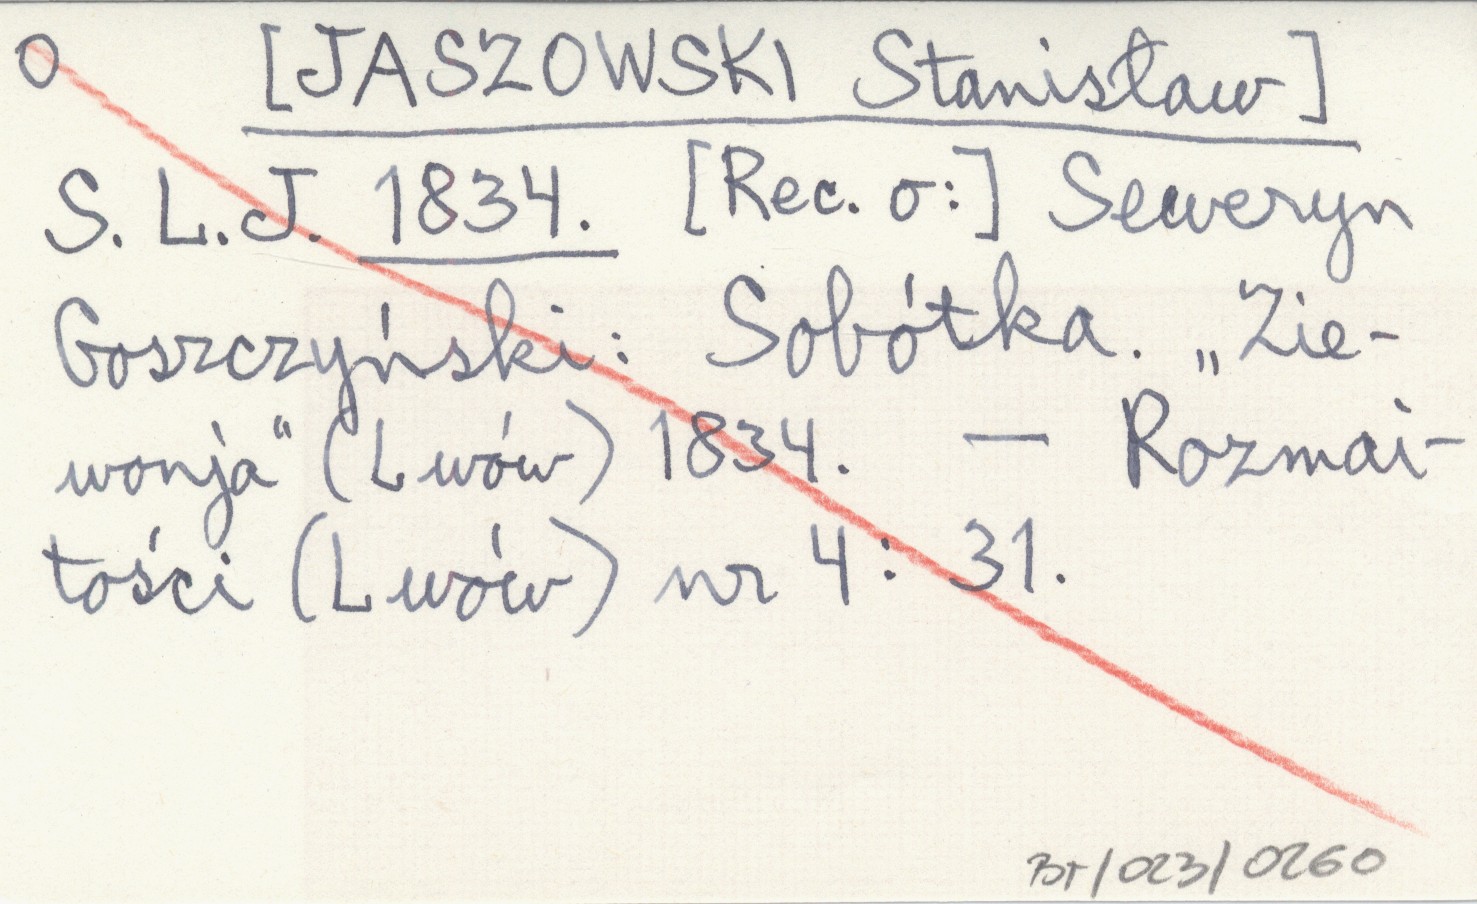 O [JASZOWSKI Stanisław]
S. L. J. 1834. [Rec. o:] Seweryn
Goszczyński: Sobótka. „Zie-
wonja" (Lwów) 1834. — Rozmai-
tości (Lwów) nr 4: 31.
BT/023/0260